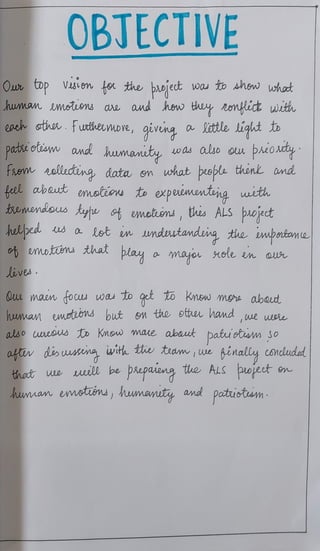 OBJECTIVE
Our top vision for the project was to show what
human emotions are and how they conflict with
each other. Furthermore, giving a little light to
patriotism and humanity was also our priority.
From collecting data on what people think and
feel about emotions to experimenting with
tremendous type of emotions, this ALS project
helped us a lot in understanding the importance
of emotions that play a major role in our
lives.
Our main focus was to get to know more about
human emotions but on the other hand, we were
also curious to know more about patriotism so
after discussing with the team, we finally concluded
that we will be preparing the ALS project on
human emotions, humanity and patriotism.